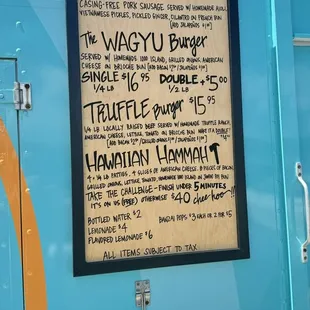 CASING-FREE PORK SAUSAGE SERVED W/ HOMEMADE AIOLI,
VIETNAMESE PICKLES, PICKLED GINGER, CILANTRO ON FRENCH BUN
(ADD JALAPEÑOS $1)
The WAGYU Burger
SERVED W/ HOMEMADE 1000 ISLAND, GRILLED ONIONS, AMERICAN
CHEESE ON BRIOCHE BUN
SINGLE $16.95 DOUBLE +$5.00
1/4 LB 1/2 LB
TRUFFLE Burger $15.95
1/4 LB LOCALLY RAISED BEEF SERVED W/ HOMEMADE TRUFFLE RANCH,
AMERICAN CHEESE, LETTUCE, TOMATO ON BRIOCHE BUN MAKE IT A DOUBLE
HAWAIIAN HAMMAH
4 - 1/4 LB PATTIES, 4 SLICES OF AMERICAN CHEESE, 8 PIECES OF BACON,
GRILLED ONIONS, LETTUCE, TOMATO, HOMEMADE 1000 ISLAND ON
TAKE THE CHALLENGE - FINISH UNDER 5 MINUTES
IT'S ON US (FREE) OTHERWISE $40 chee-hoo!!
BOTTLED WATER $2 BANZAI POPS $3 EACH OR 2 FOR $5
LEMONADE $4
FLAVORED LEMONADE $6
ALL ITEMS SUBJECT TO TAX